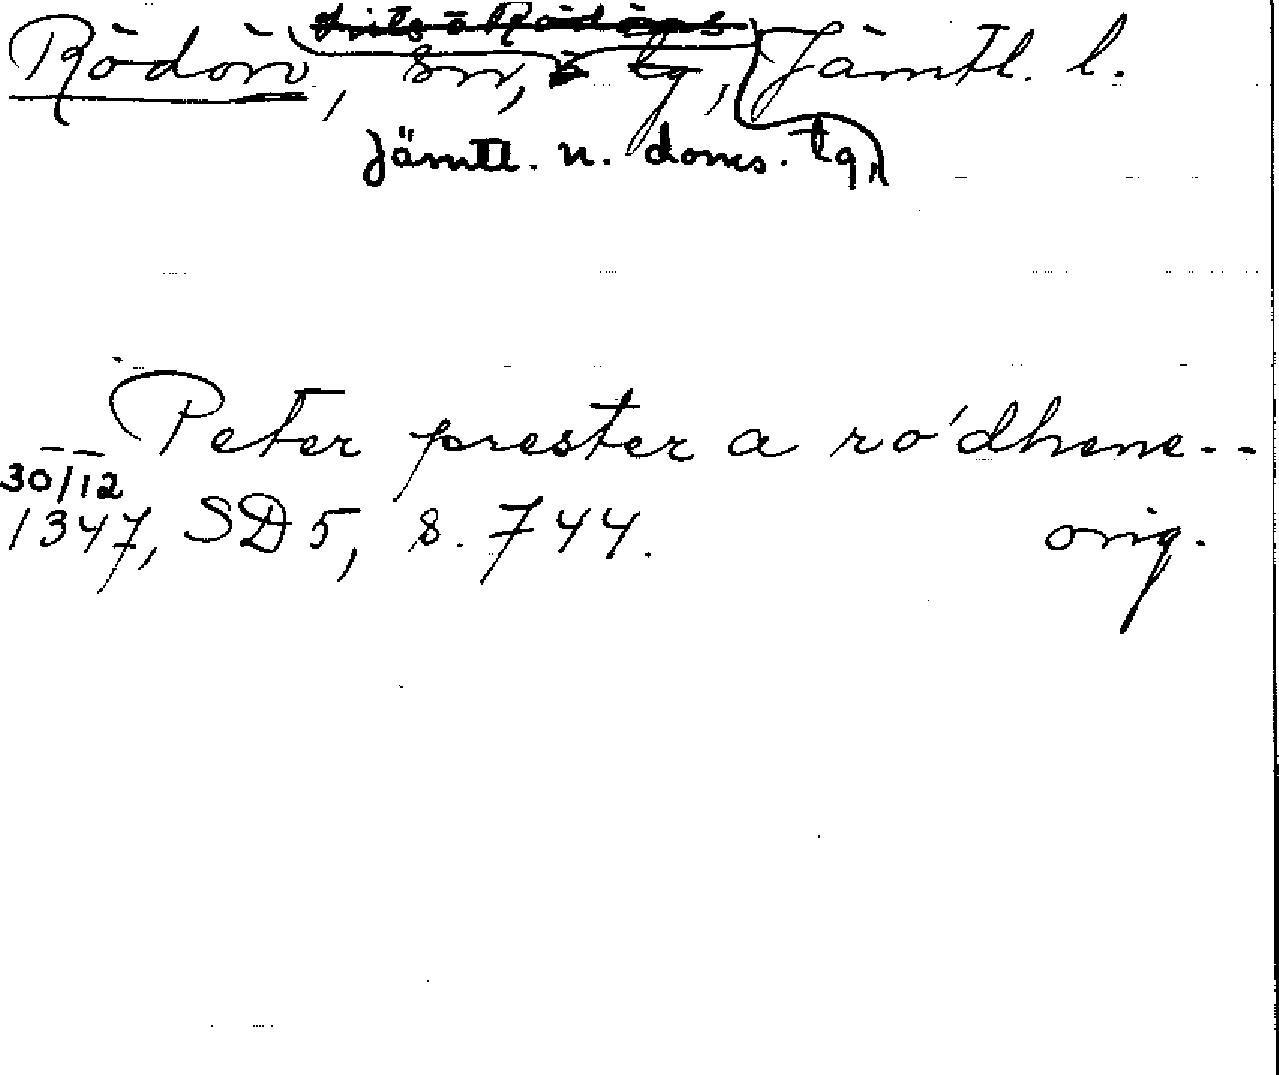 Rödön, sn, tg, Jämtl. l.
Jämtl. n. doms. tg,
Peter prester a ro´dhene--
30/12
1347, SD 5, s. 744. orig.